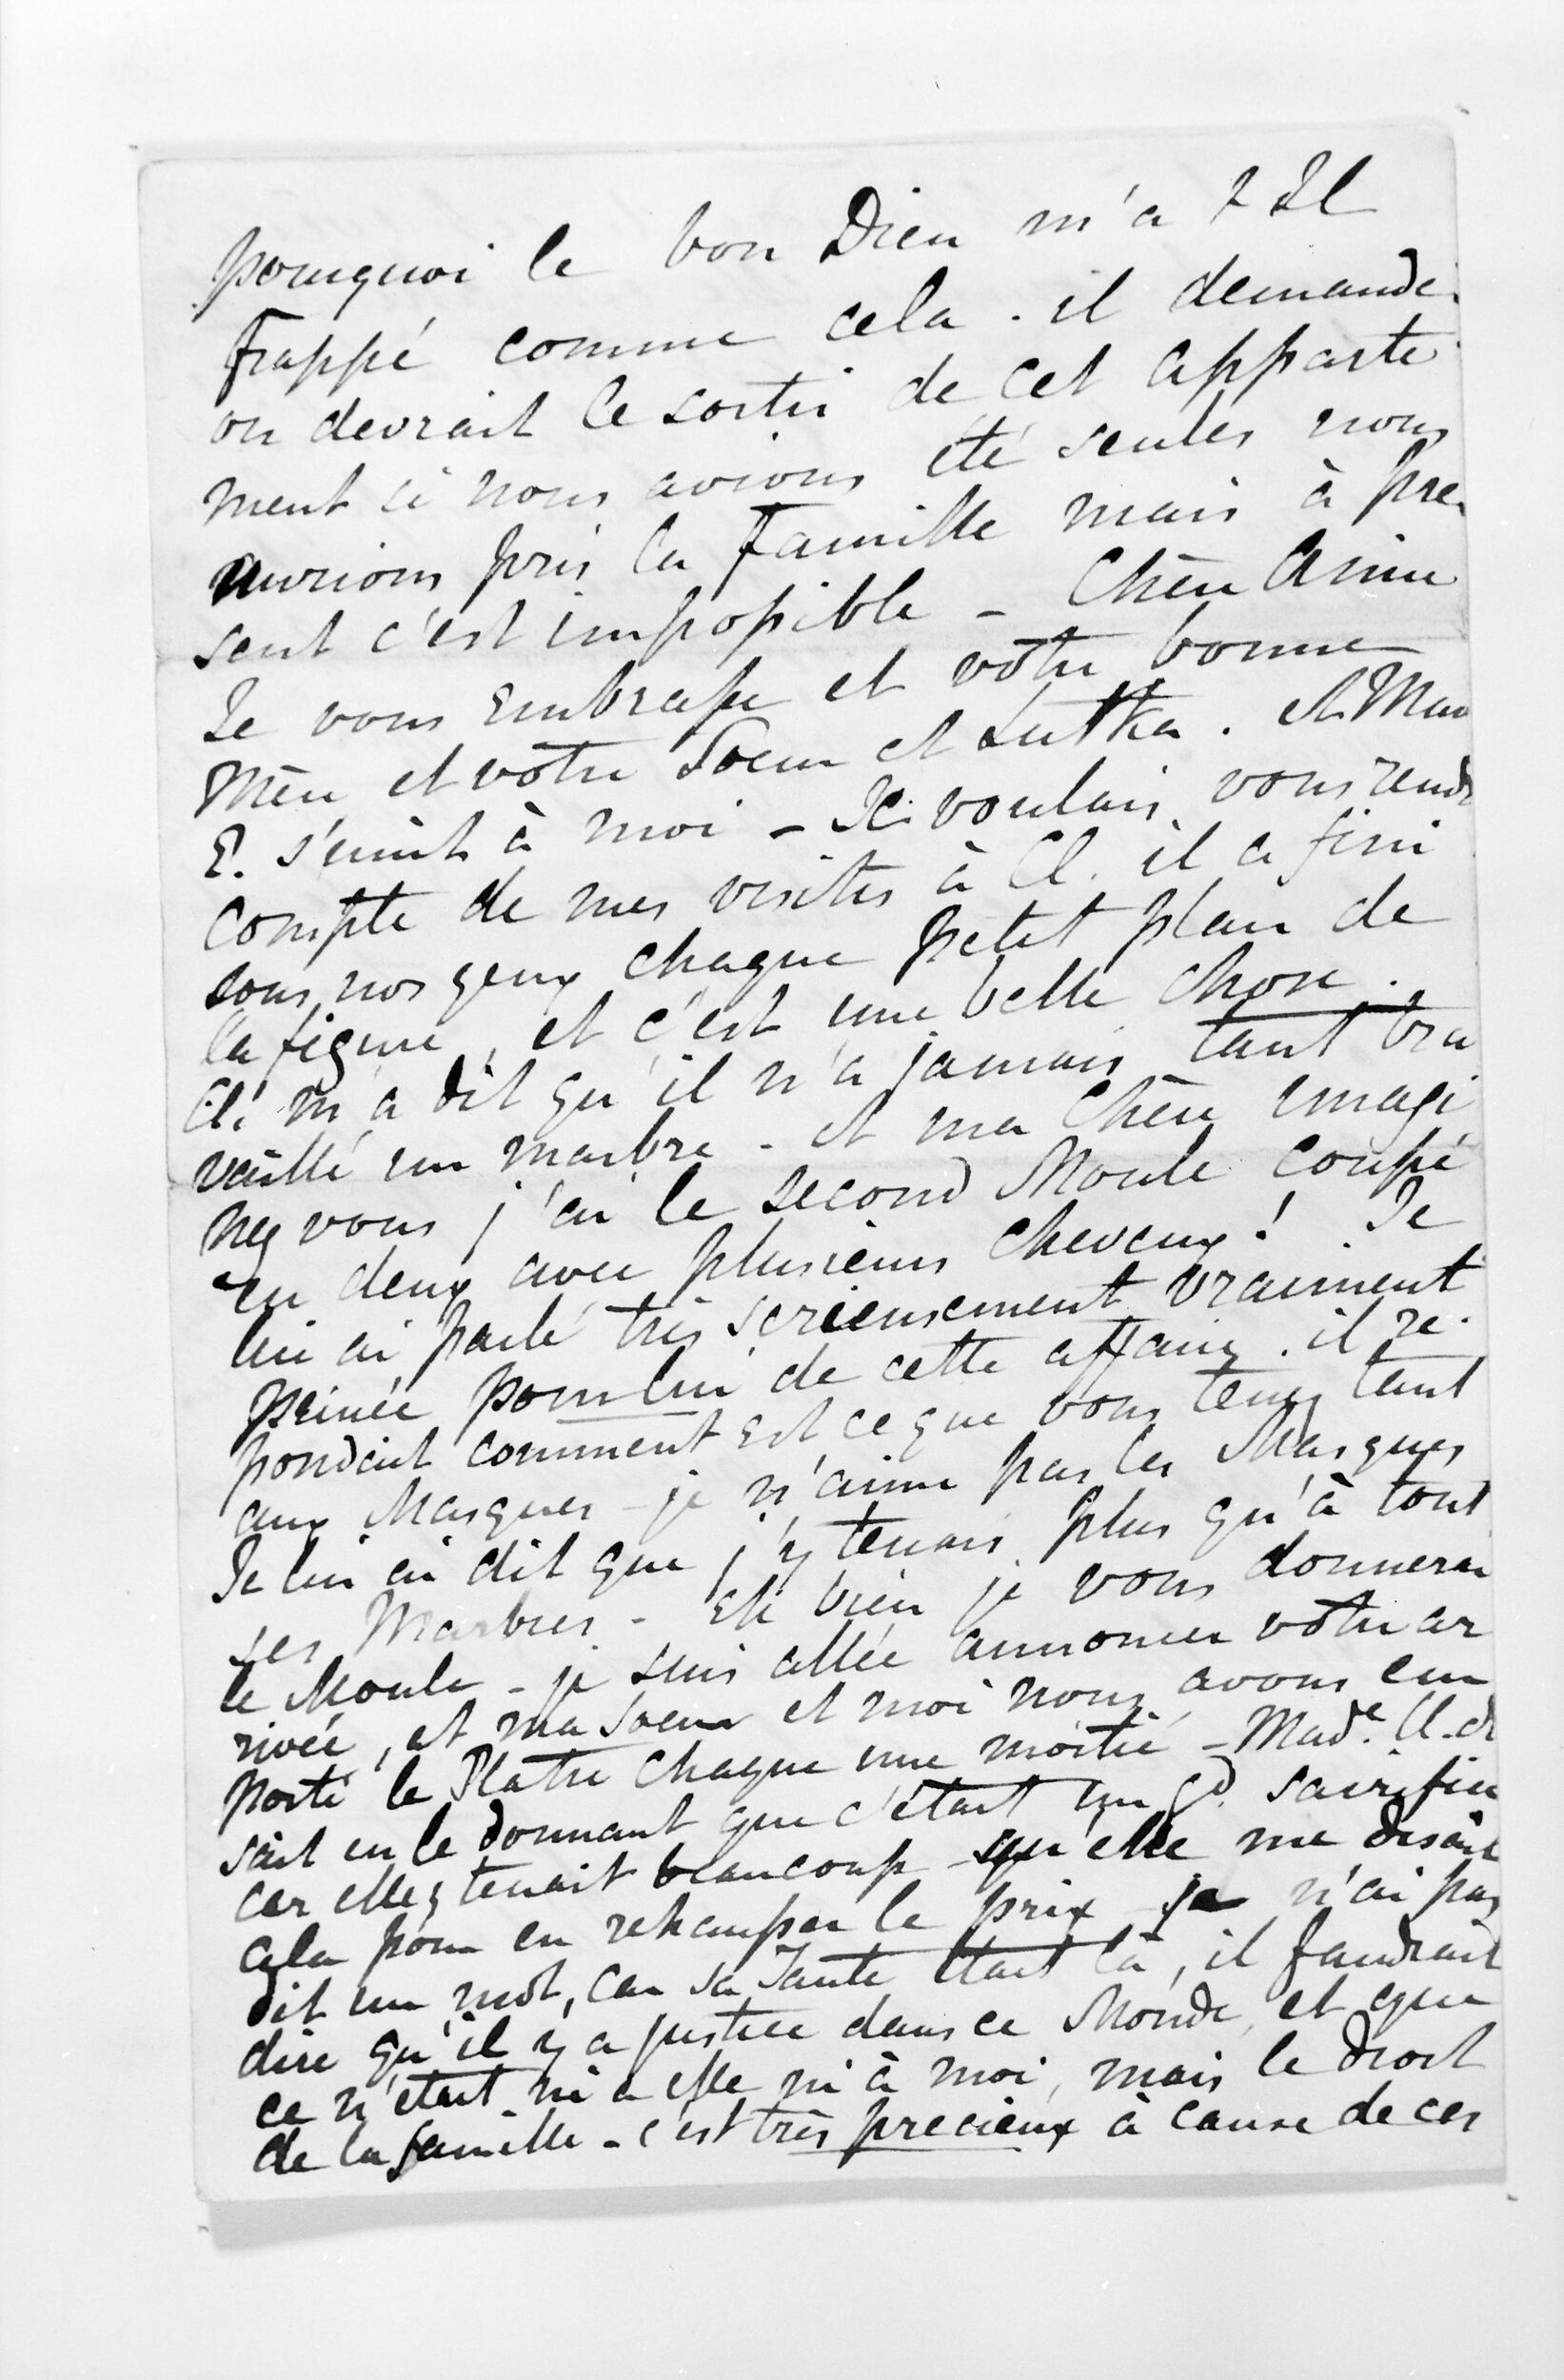 pourquoi le bon Dieu m'a t Il
frappé comme cela. il demande.
on devrait le sortir de cet apparte
ment si nous avions été seules nous
aurions pris la Famille mais à pre.
sent c'est impossible _ Chère Amie
Je vous Embrasse et vôtre bonne
Mère et vôtre Soeur et Lutka. et Mau
E. s'unit à moi _ Je voulais vous rendr
compte de mes visites à Cl. il a fini
sous nos yeux chaque petit plan de
la figure, et c'est une belle chose.
Cl. m'a dit qu'il n'a jamais tant tra
vaillé un marbre - et ma Chère imagi
nez vous j'ai le second Moule coupé
en deux avec plusieurs cheveux! Je
lui ai parlé très serieusement vraiment
peinée pour lui de cette affaire. il re.
pondait comment est ce que vous tenez tant
aux Masques - je n'aime pas les Masques
Je lui ai dit que j'y tenais plus qu'à tout
ses Marbres - Eh bien je vous donnerai
le Moule - je suis allée annoncer votre ar
rivée, et ma Soeur et moi nous avons em
porté le Platre chaque une moitié _ Made. Cl. di
sait en le donnant que c'était un gd. sacrifice
car elle y tenait beaucoup - qu'elle me disait
cela pour en rehausser le prix je n'ai pas
dit un mot, car sa Tante était là, il faudrait
dire qu'il y a justice dans ce Monde, et que
ce n'était ni a elle ni à moi, mais le droit
de la famille - c'est très precieux à cause de ces